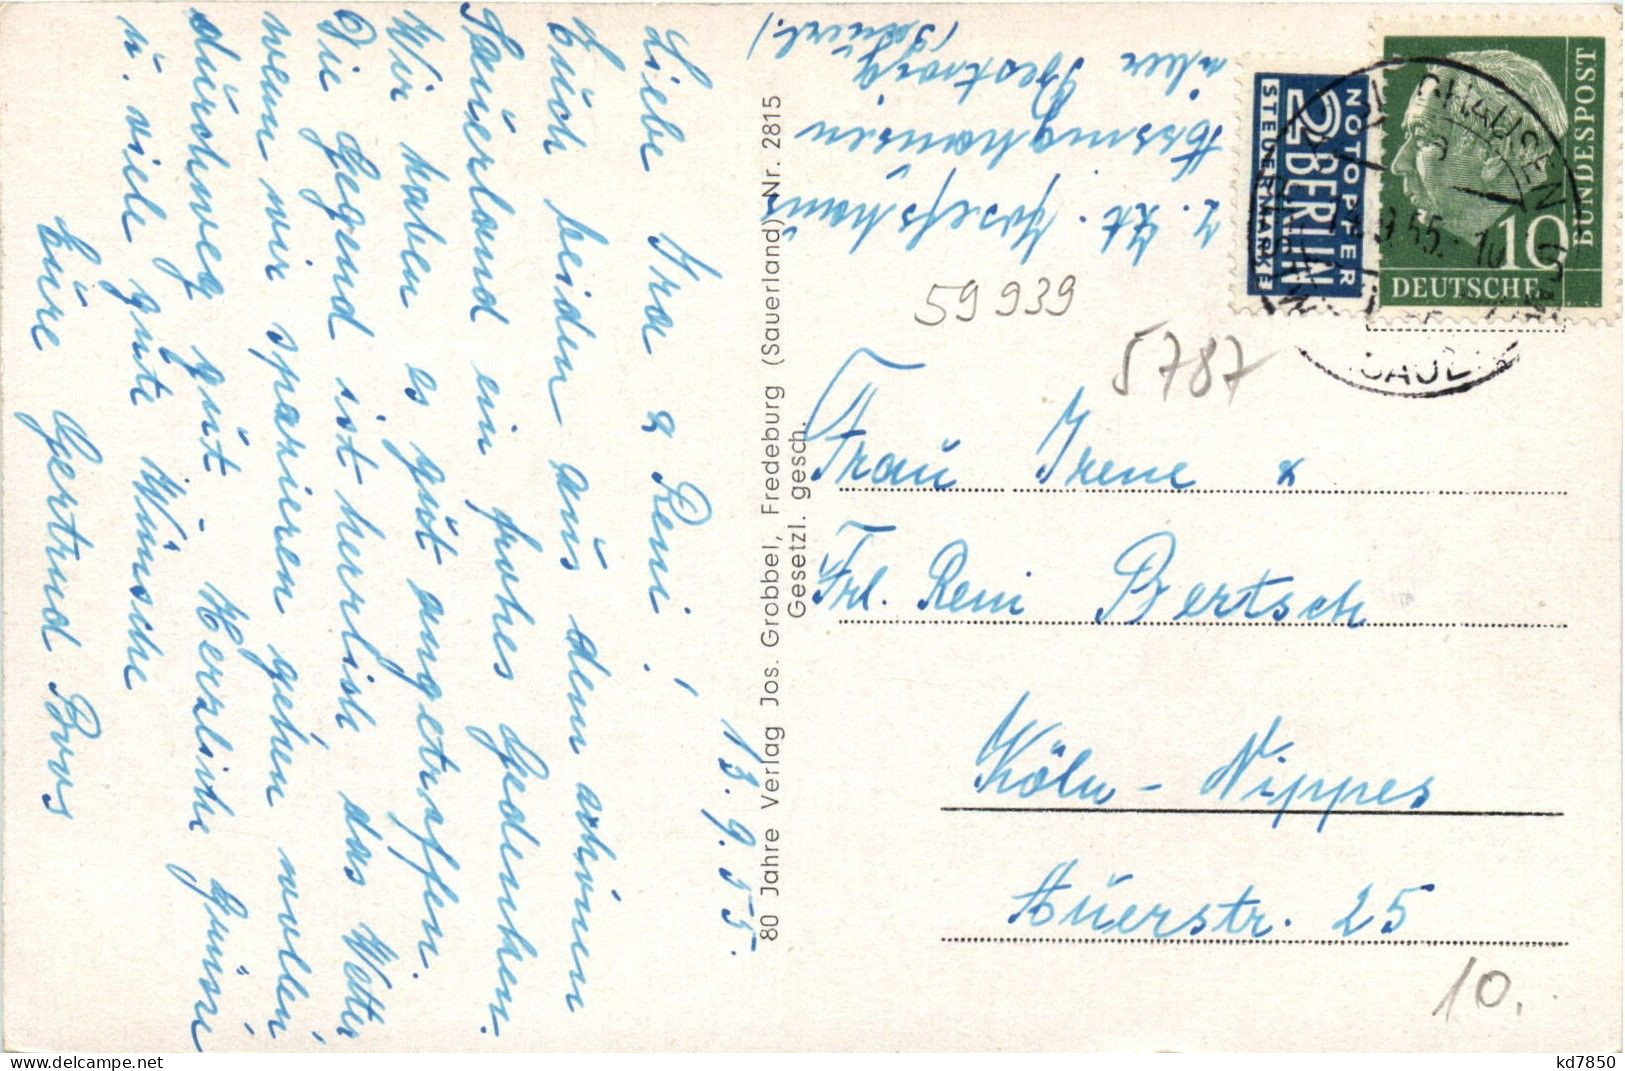 13. 9. 55.
Liebe Ira & Reni!
Euch beiden aus dem schönen
Sauerland ein frohes Gedenken.
Wir haben es gut angetroffen.
Die Gegend ist herrlich das Wetter
wenn wir spazieren gehen wollen
durchweg gut. Herzliche Grüße
u. viele gute Wünsche
Eure Gertrud Boos
z. Zt. Josefshaus
über Bestwig
(Sauerl.)
80 Jahre Verlag Jos. Grobbel, Fredeburg (Sauerland) Nr. 2815
Gesetzl. gesch.
2 BERLIN
NOTOPFER
STEUERMARKE
DEUTSCHE
BUNDESPOST
10
9.55.-10
59939
5787
Frau Irene &
Frl. Reni Bertsch
Köln-Nippes
Auerstr. 25
10.
© DELCAMPE
kd7850